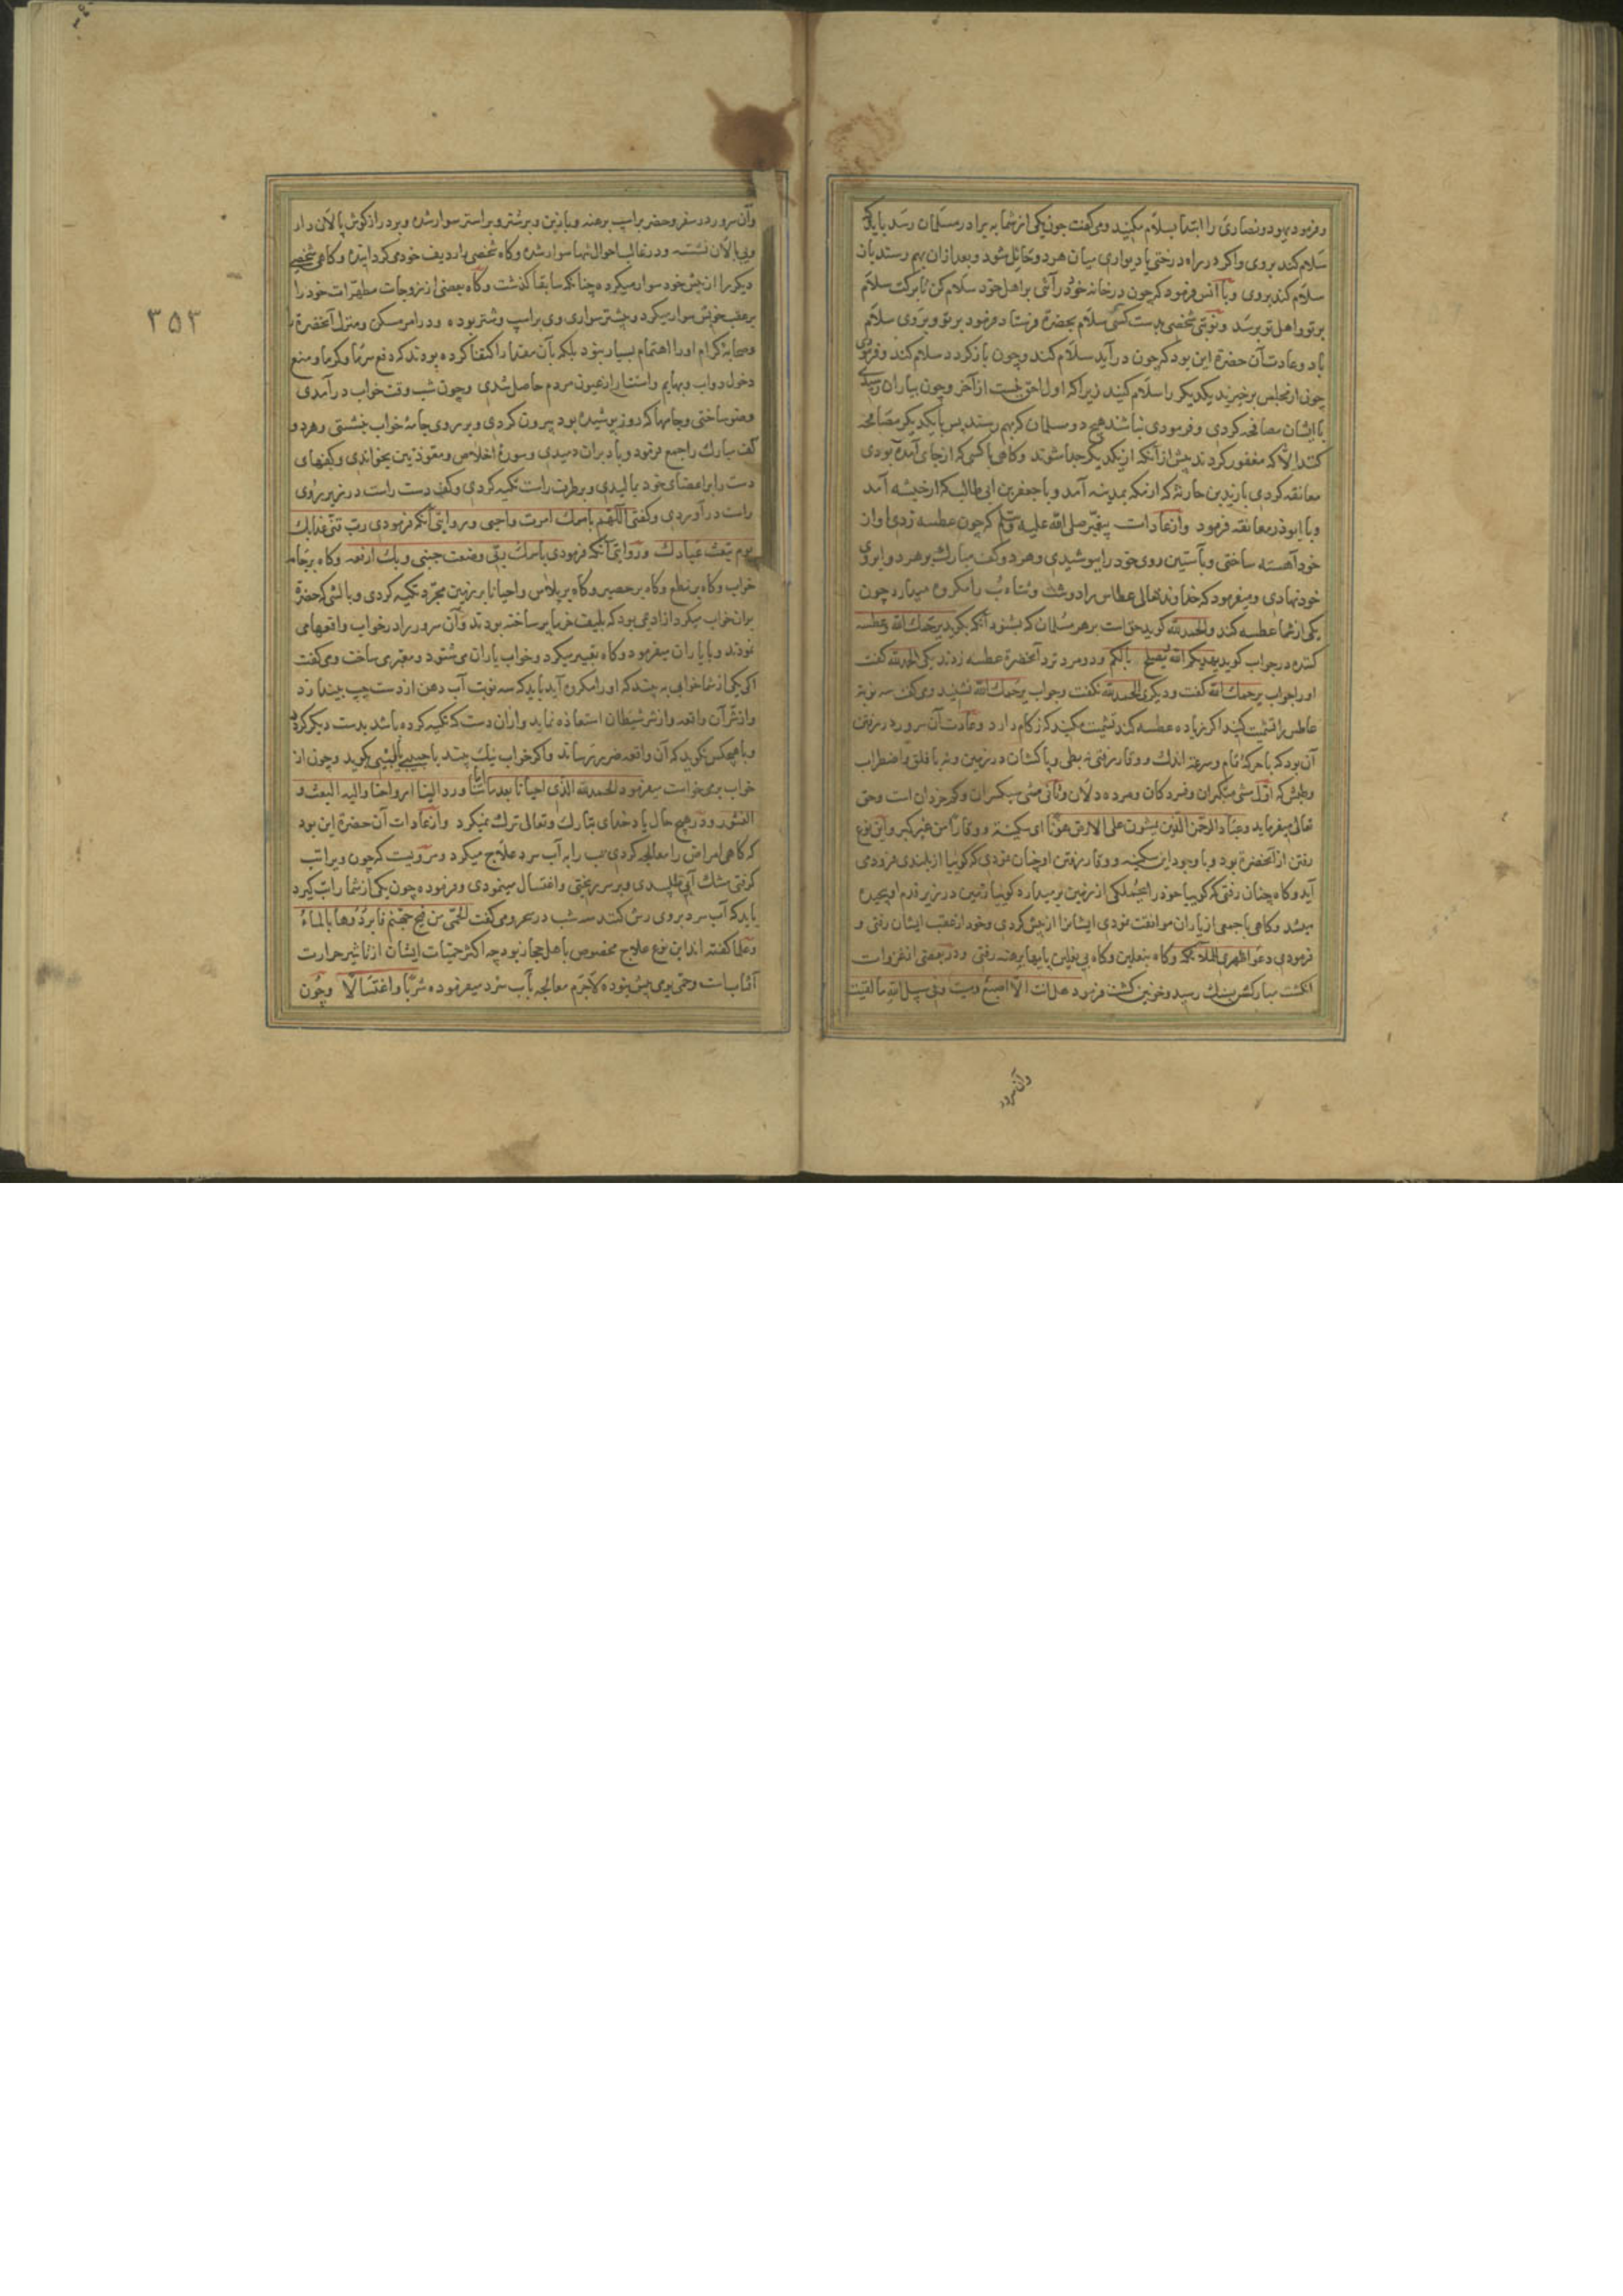 و فرمود یهود و نصاری را ابتدا بسلام مکنید و می‌گفت چون یکی از شما به برادر مسلمان رسد باید که
سلام کند بروی و اگر در راه درختی یا دیواری میان هر دو حائل شود و بعد از ان بهم رسند باز
سلام کند بروی و با انس فرمود که چون در خانه خود در آئی بر اهل خود سلام کن تا برکت سلام
بر تو و اهل تو برسد و نوبتی شخصی بدست کسی سلام بحضرة فرستاد فرمود بر تو و بر وی سلام
باد و عادت آن حضرة این بود که چون در آید سلام کند و چون باز گردد سلام کند و فرمودی
چون از مجلس برخیزید یکدیگر را سلام کنید زیرا که اول احق نیست از آخر و چون بیاران رسیدی
با ایشان مصافحه کردی و فرمودی نباشد هیچ دو مسلمان که بهم رسند پس با یکدیگر مصافحه
کنند الا که مغفور گردند پیش از آنکه از یکدیگر جدا شوند و گاهی با کسی که از جای آمده آبودی
معانقه کردی با زید بن حارثه که از مکه بمدینه آمد و با جعفر بن ابی طالب که از حبشه آمد
و با ابوذر معانقه فرمود و از عادات پیغمبر صلی الله علیه وسلم که چون عطسه زدی اواز
خود آهسته ساختی و بآستین روی خود را بپوشیدی و هر دو کف مبارک بر هر دو ابروی
خود نهادی و میفرمود که خداوند تعالی عطاس را دوست و تثاوب را مکروه میدارد چون
یکی از شما عطسه کند و الحمد لله گوید حق است بر هر مسلمان که بشنود آنکه بگوید یرحمک الله و عطسه
کننده در جواب گوید یهدیکم الله و یصلح بالکم و دو مرد نزد آنحضرة عطسه زدند یکی الحمد لله گفت
او را جواب یرحمک الله گفت و دیگری الحمد لله نگفت و جواب یرحمک الله نشنید و می گفت سه نوبة
عاطس را تشمیت کنید اگر زیاده عطسه کند تشمیت مکنید که زکام دارد و عادت آن سرور در رفتن
آن بود که با حرکة تمام و سرعة اندک و وقار رفتی نه بطی و پاکشان در زمین و نه با قلق و اضطراب
و طیش که اول مشی متکبران و فسردگان و مرده دلان و ثانی مشی سبکسران و کم خردان است و حق
تعالی میفرماید و عباد الرحمن الذین یمشون علی الارض هونا ای سکینة و وقارا من غیر کبر و این نوع
رفتن از آنحضرة بود و با وجود این سکینه و وقار رفتن او چنان نمودی که گوییا از بلندی فرود می
آید و گاه چنان رفتی که گوییا خود را بجملگی از زمین بر میدارد گوییا زمین در زیر قدم او پیچیده
میشد و گاهی با جمعی از یاران موافقت نمودی ایشانرا از پیش کردی و خود از عقب ایشان رفتی و
فرمودی دعوا ظهری للملائکة و گاه بنعلین و گاه بی نعلین پایها برهنه رفتی و در بعضی از غزوات
انگشت مبارکش بسنگ رسید و خونین گشت فرمود هل انت الا اصبع دمیت و فی سبیل الله ما لقیت
وآن سرور
۳۵۳
وآن سرور در سفر و حضر بر اسپ برهنه و با زین و بر شتر و بر استر سوار شده و بر دراز گوش پالان دار
و بی پالان نشسته و در غالب احوال تنها سوار شده و گاه شخصی را ردیف خود می گردانیده و گاهی شخصی
دیگر را از پیش خود سوار میکرده چنانکه سابقا گذشت و گاه بعضی از زوجات مطهرات خود را
بر عقب خویش سوار میکرد و بیشتر سواری وی بر اسپ و شتر بوده و در امر مسکن و منزل آنحضرة را
و صحابة کرام او را اهتمام بسیار نبود بلکه بآن مقدار اکتفا کرده بودند که دفع سرما و گرما و منع
دخول دواب و بهایم و استتار از عیون مردم حاصل شدی و چون شب وقت خواب در آمدی
وضو ساختی و جامها که روز پوشیده بود بیرون کردی و بر روی جامهٔ خواب نشستی و هر دو
کف مبارک را جمع فرمود و باد بران دمیدی و سورهٔ اخلاص و معوذتین بخواندی و کفهای
دست را بر اعضای خود بمالیدی و بر طرف راست تکیه کردی و کف دست راست در زیر روی
راست در آوردی و گفتی اللهم باسمک اموت و احیی و بروایتی آنکه فرمودی رب قنی عذابک
یوم تبعث عبادک و روایتی آنکه فرمودی باسمک ربی وضعت جنبی و بک ارفعه و گاه بر جامه
خواب و گاه بر نطع و گاه بر حصیر و گاه بر پلاس و احیانا بر زمین مجرد تکیه کردی و بالشی که حضرة
بران خواب میکرد از ادیمی بود که بلیف خرما پر ساخته بودند و آن سرور را در خواب واقعها می
نمودند و با یاران میفرمود و گاه تعبیر میکرد و خواب یاران می شنود و معبر می ساخت و می گفت
اگر یکی از شما خوابی بیند که او را مکروه آید باید که سه نوبت آب دهن از دست چپ بیندازد
و از شر آن واقعه و از شر شیطان استعاذه نماید و ازان دست که تکیه کرده باشد بدست دیگر گردد
و با هیچکس نگوید که آن واقعه ضرر نرساند و اگر خواب نیک بیند با حبیبی یا لبیبی بگوید و چون از
خواب بر می خواست میفرمود الحمد لله الذی احیانا بعد ما اماتنا ورد الینا ارواحنا والیه البعث و
النشور و در هیچ حال یاد خدای تبارک و تعالی ترک نمیکرد و از عادات آن حضرة این بود
که گاهی امراض را معالجه کردی تب را به آب سرد علاج میکرد و مرویست که چون ویرا تب
گرفتی مشک آبی طلبیدی و بر سر ریختی و اغتسال مینمودی و فرموده چون یکی از شما را تب گیرد
باید که آب سرد بروی رش کنند سه شب در سحر و می گفت الحمی من فیح جهنم فابردوها بالماء
و علما گفته اند این نوع علاج مخصوص باهل حجاز بود چه اکثر حمیات ایشان از تاثیر حرارت
آفتابست و حمی یومی بیش نبوده لاجرم معالجه بآب سرد میفرموده شربا و اغتسالا و چون